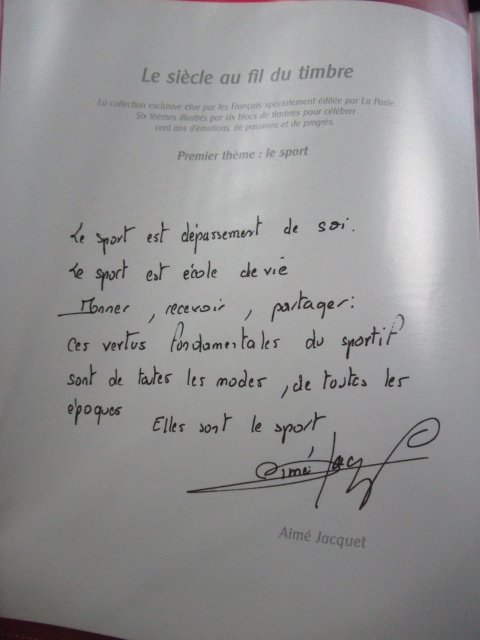 Le siècle au fil du timbre
La collection exclusive élue par les Français spécialement éditée par La Poste.
Six thèmes illustrés par six blocs de timbres pour célébrer
cent ans d'émotions, de passions et de progrès.
Premier thème : le sport
Le sport est dépassement de soi.
Le sport est école de vie
Donner, recevoir, partager:
Ces vertus fondamentales du sportif
sont de toutes les modes, de toutes les
époques
Elles sont le sport
Aimé Jacquet
Aimé Jacquet